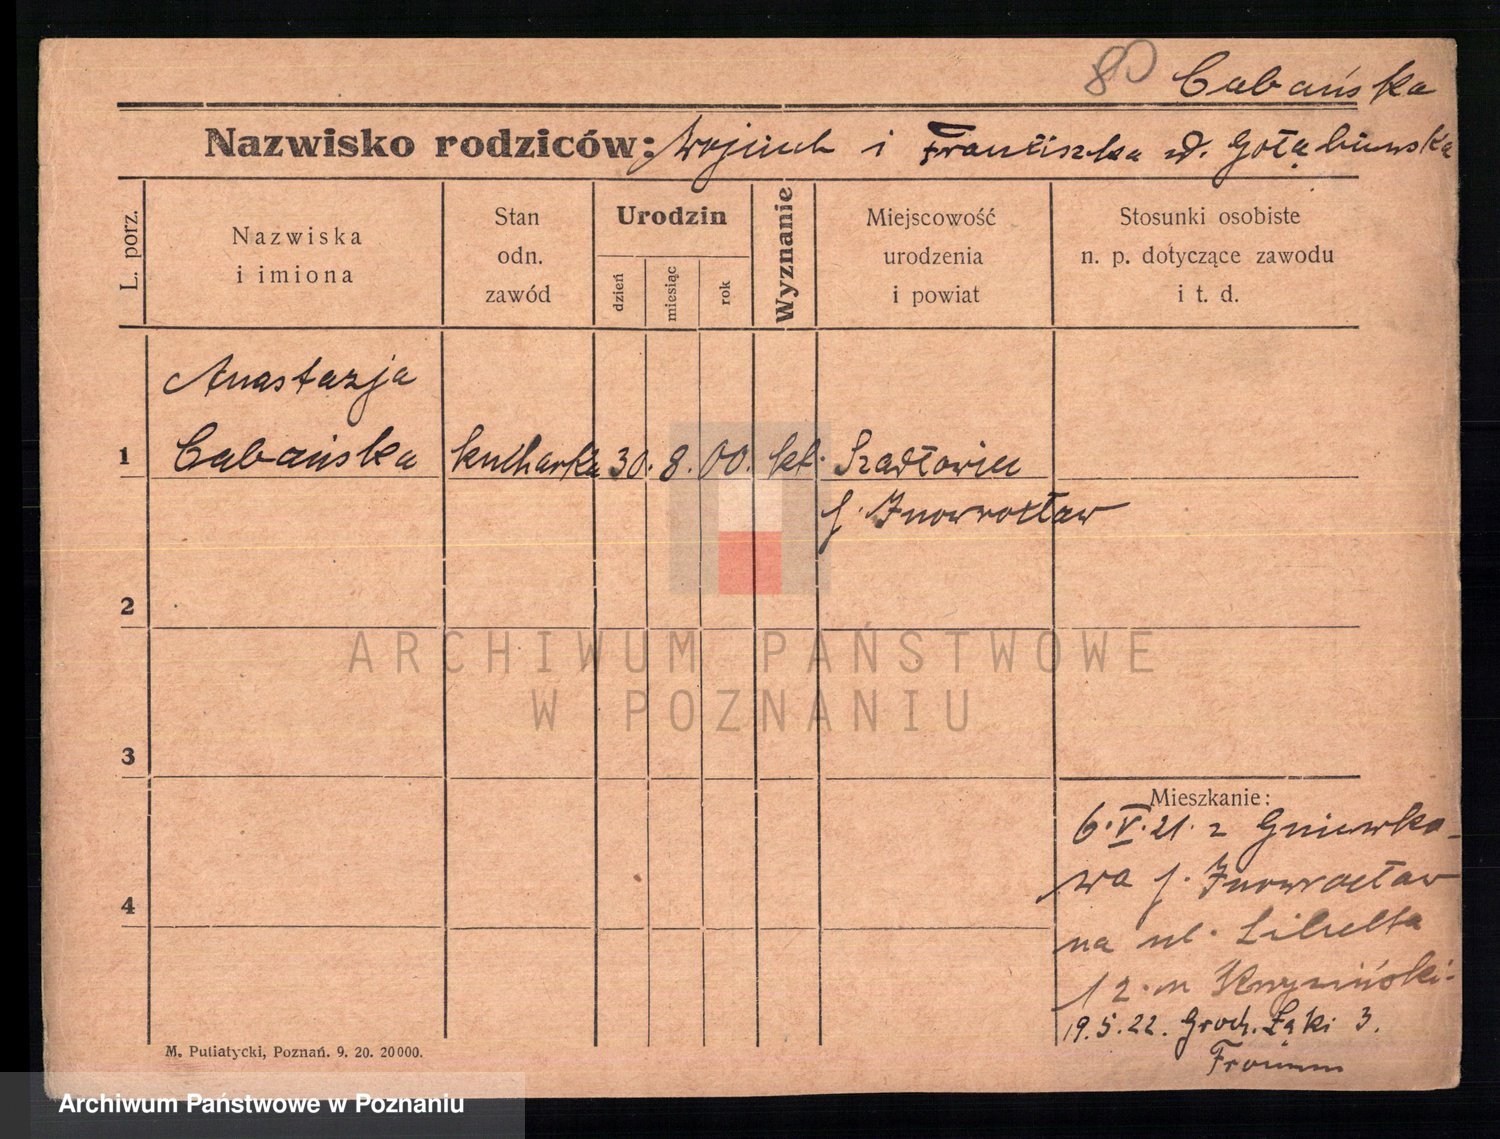 80 Cabańska
Nazwisko rodziców: Wojciech i Franciszka z d. Gołębiewska
L. porz.
Nazwiska
i imiona
Stan
odn.
zawód
Urodzin
dzień
miesiąc
rok
Wyznanie
Miejscowość
urodzenia
i powiat
Stosunki osobiste
n. p. dotyczące zawodu
i t. d.
Anastazja
1 Cabańska kucharka 30. 8. 00. kt. Szadłowice
p. Inowrocław
2
3
4
Mieszkanie:
6.V.21. z Gniewko-
wa p. Inowrocław
na ul. Libelta
12. m
19.5.22. Groch. Łąki 3.
M. Putiatycki, Poznań. 9. 20. 20000.
ARCHIWUM PAŃSTWOWE
W POZNANIU
Archiwum Państwowe w Poznaniu